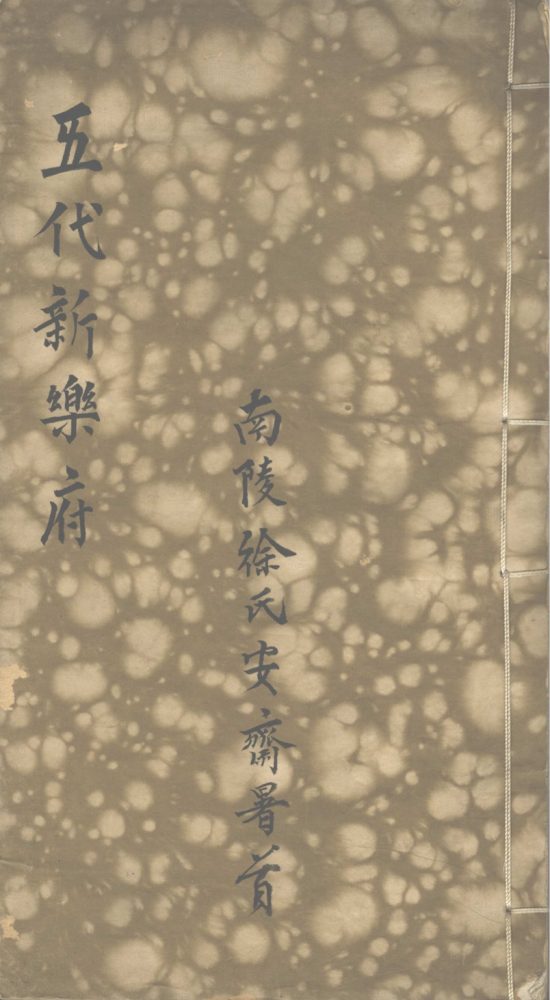 五代新樂府
南陵徐氏安齋署首